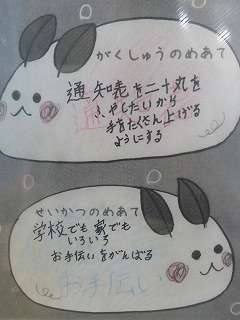 がくしゅうのめあて
通知表を二十丸を
ふやしたいから
手をたくさん上げる
ようにする
せいかつのめあて
学校でも家でも
いろいろ
お手伝いをがんばる
お手伝い